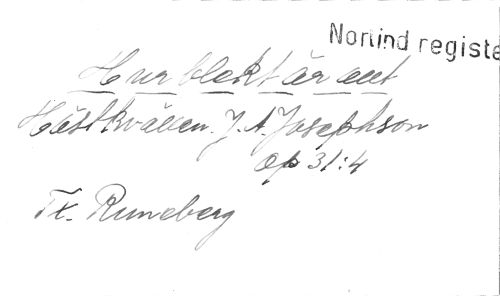 Norlind registe
Hur blekt är allt
Höstkvällen. J. A. Josephson
op 31:4
Tx. Runeberg